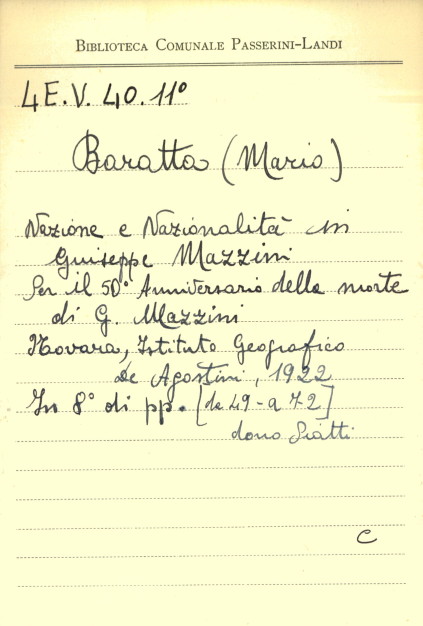 BIBLIOTECA COMUNALE PASSERINI-LANDI
4E.V.40.11°
Baratta (Mario)
Nazione e Nazionalità in
Giuseppe Mazzini
Per il 50° Anniversario della morte
di G. Mazzini
Novara, Istituto Geografico
De Agostini, 1922
In 8° di pp. [da 49-a 72]
dono
C